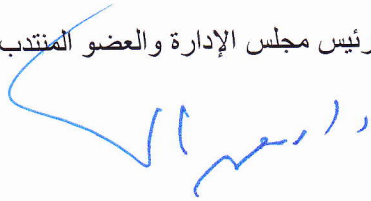 رئيس مجلس الإدارة والعضو المنتدب